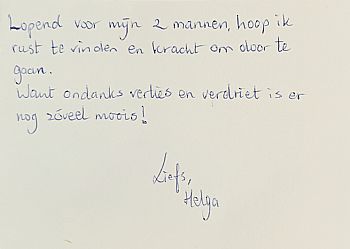 Lopend voor mijn 2 mannen, hoop ik
rust te vinden en kracht om door te
gaan.
Want ondanks verlies en verdriet is er
nog zóveel moois!
Liefs,
Helga